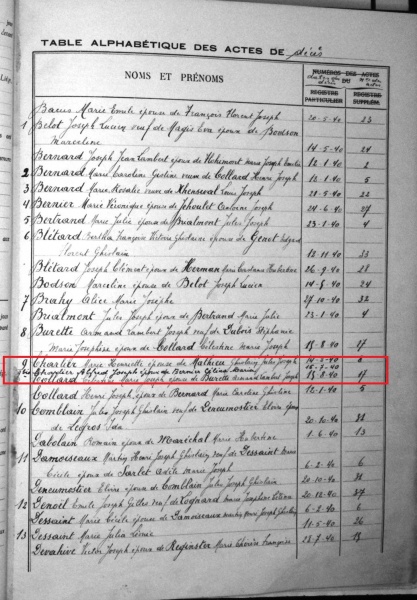 TABLE ALPHABÉTIQUE DES ACTES DE décès
NOMS ET PRÉNOMS
NUMÉROS DES ACTES
DU
REGISTRE PARTICULIER
REGISTRE SUPPLÉM.
Bacus Marie Emile épouse de François Florent Joseph 20-5-40 23
1 Belot Joseph Lucien veuf de Magis Eva époux de Bodson
Marceline 14-5-40 24
Bernard Joseph Jean Lambert époux de Marie Joseph 12-1-40 2
2 Bernard Marie Caroline veuve de Collard Henri Joseph 12-1-40 5
3 Bernard Marie Rosalie veuve de Joseph 28-5-40 22
4 Bernier Marie Véronique épouse de Jehoulet Antoine Joseph 24-6-40 27
5 Bertrand Marie Julie épouse de Bualmont Jules Joseph 23-1-40 4
6 Blétard Bertha Françoise Victoire Ghislaine épouse de Genot
Florent Ghislain 12-11-40 33
Blétard Joseph Clément époux de Herman 26-9-40 28
Bodson Marceline épouse de Belot Joseph Lucien 14-5-40 24
7 Brahy Alice Marie Josèphe 29-10-40 32
Bualmont Jules Joseph époux de Bertrand Marie Julie 23-1-40 4
8 Burette Armand Lambert Joseph veuf de Dubois Stéphanie
Marie Josephine époux de Collard Célestine Marie Joseph 13-8-40 17
9 Charlier Marie Henriette épouse de Mathieu Ghislain Jules Joseph 14-2-40 8
Charlier Alfred Joseph époux de Célina Maria 15-7-40
Collard Célestine Marie Joseph épouse de Burette Armand Lambert Joseph 13-8-40 17
Collard Henri Joseph époux de Bernard Marie Caroline 12-1-40 5
10 Comblain Jules Joseph Ghislain veuf de Lincumostier époux
de Legros Ida 20-10-40 31
Dabolain Romain époux de Maréchal Marie Hubertine 1-6-40 13
11 Damoiseaux Martin Henri Joseph Ghislain veuf de Dessaint
Cécile époux de Sarlet Marie Joseph 6-2-40 6
épouse de Comblain Jules Joseph Ghislain 20-10-40 31
12 Denoël Emile Joseph Gilles veuf de Marie Joséphine 20-12-40 37
Dessaint Marie Cécile épouse de Damoiseaux Martin Henri Joseph Ghislain 6-2-40 6
13 Dessaint Marie Julia 11-5-40 26
Devahive Victor Joseph époux de Reginster Marie Françoise 28-7-40 15